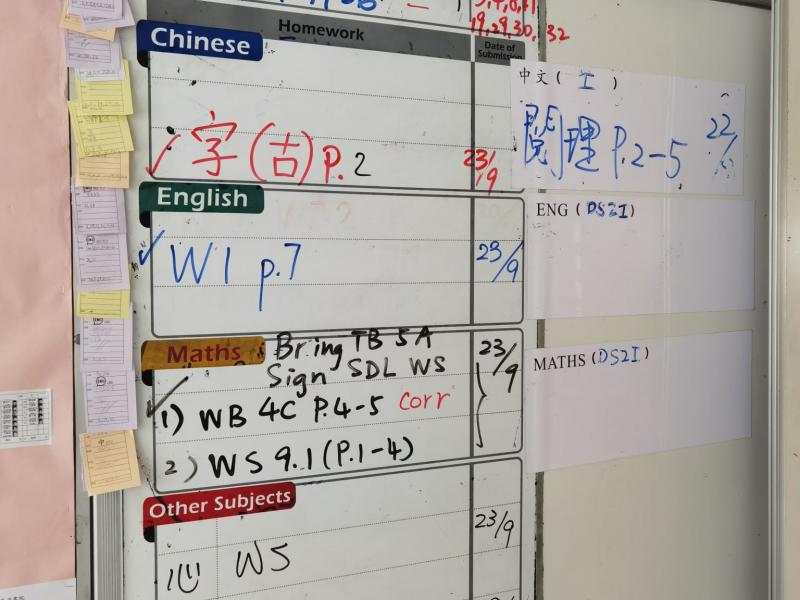 19,29,30, 32
Homework
Date of Submission
Chinese
字(古) P. 2
23/9
中文( I )
閱理 P.2-5
22/
English
W1 p.7
23/9
ENG (DS2I)
Maths
Bring TB 5A
Sign SDL WS
23/9
1) WB 4C P.4-5 corr
2) WS 9.1 (P.1-4)
MATHS (DS2I)
Other Subjects
心 WS
23/9